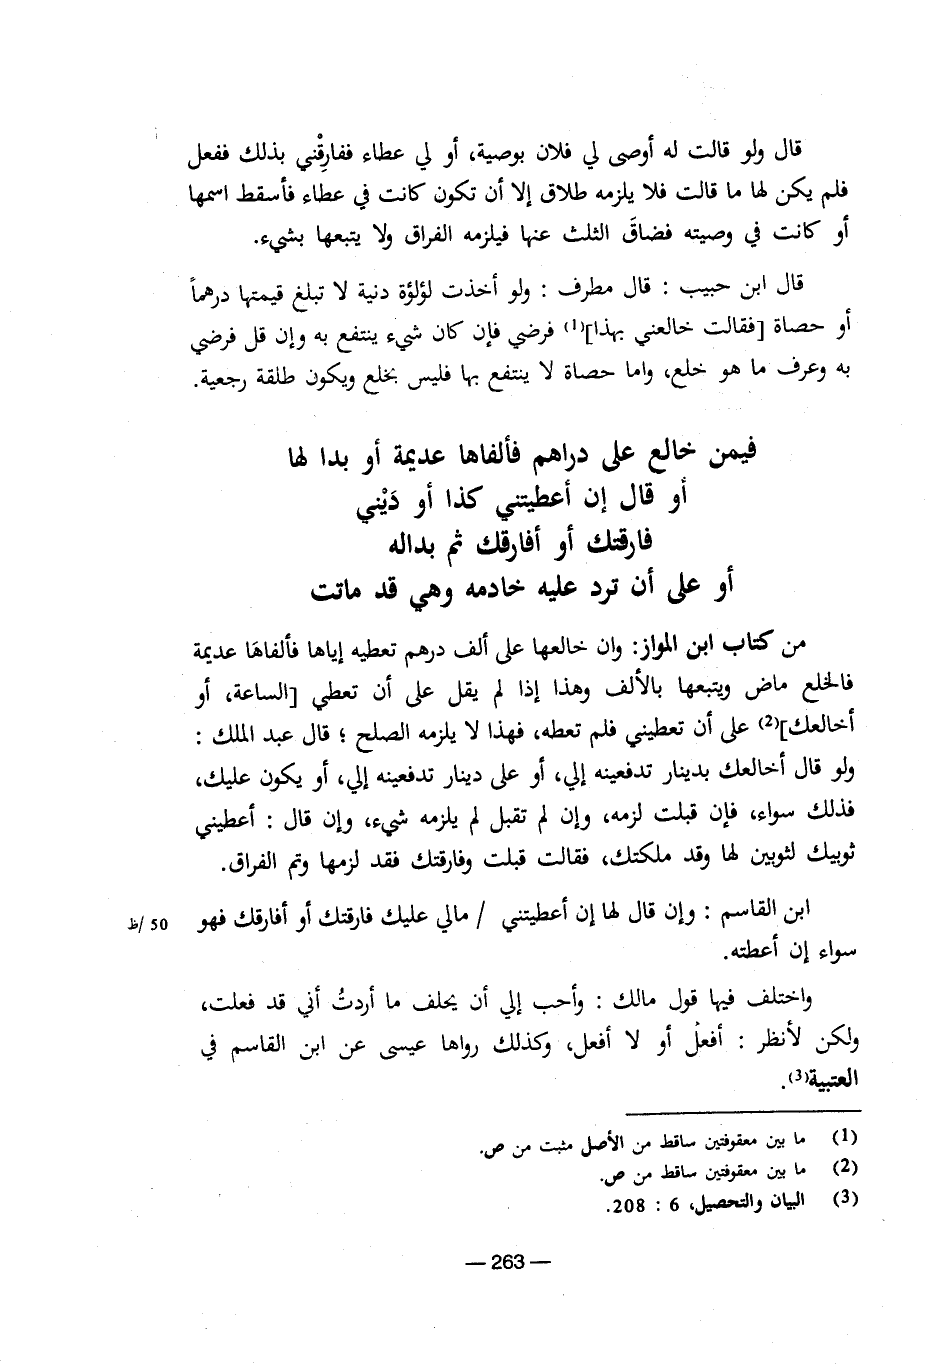 قال ولو قالت له أوصى لي فلان بوصية، أو لي عطاء ففارِقْني بذلك ففعل
فلم يكن لها ما قالت فلا يلزمه طلاق إلا أن تكون كانت في عطاء فأسقط اسمها
أو كانت في وصيته فضاقَ الثلث عنها فيلزمه الفراق ولا يتبعها بشيء.
قال ابن حبيب : قال مطرف : ولو أخذت لؤلؤة دنية لا تبلغ قيمتها درهماً
أو حصاة [فقالت خالعني بهذا](1) فرضي فإن كان شيء ينتفع به وإن قل فرضي
به وعرف ما هو خلع، واما حصاة لا ينتفع بها فليس بخلع ويكون طلقة رجعية.
فيمن خالع على دراهم فألفاها عديمة أو بدا لها
أو قال إن أعطيتني كذا أو دَيْني
فارقتك أو أفارقك ثم بداله
أو على أن ترد عليه خادمه وهي قد ماتت
من كتاب ابن المواز: وان خالعها على ألف درهم تعطيه إياها فألفاهَا عديمة
فالخلع ماض ويتبعها بالألف وهذا إذا لم يقل على أن تعطي [الساعة، أو
أخالعك](2) على أن تعطيني فلم تعطه، فهذا لا يلزمه الصلح ؛ قال عبد الملك :
ولو قال أخالعك بدينار تدفعينه إلي، أو على دينار تدفعينه إلي، أو يكون عليك،
فذلك سواء، فإن قبلت لزمه، وإن لم تقبل لم يلزمه شيء، وإن قال : أعطيني
ثوبيك لثوبين لها وقد ملكتك، فقالت قبلت وفارقتك فقد لزمها وتم الفراق.
ابن القاسم : وإن قال لها إن أعطيتني / مالي عليك فارقتك أو أفارقك فهو 50 /ظ
سواء إن أعطته.
واختلف فيها قول مالك : وأحب إلي أن يحلف ما أردتُ أني قد فعلت،
ولكن لأنظر : أفعلُ أو لا أفعل، وكذلك رواها عيسى عن ابن القاسم في
العتبية(3).
(1) ما بين معقوفتين ساقط من الأصل مثبت من ص.
(2) ما بين معقوفتين ساقط من ص.
(3) البيان والتحصيل، 6 : 208.
— 263 —